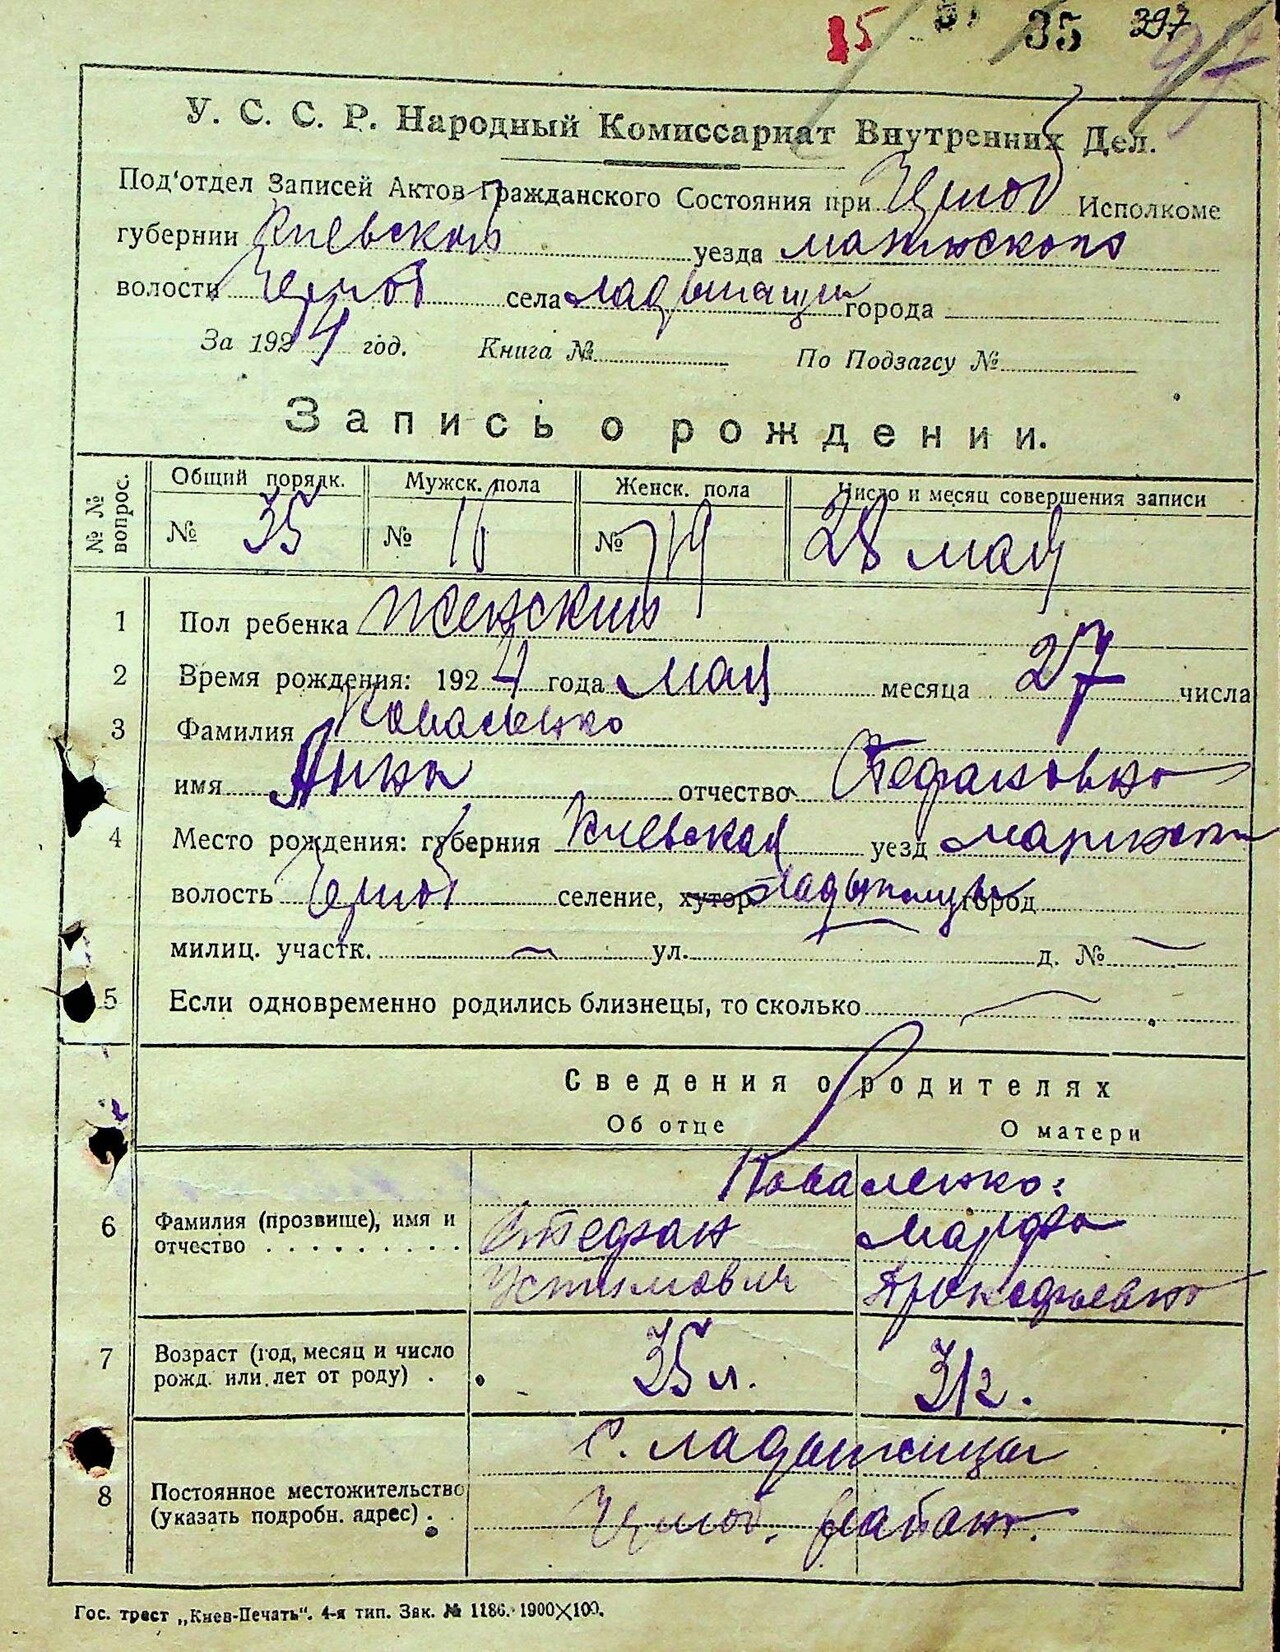 15 35 397
У. С. С. Р. Народный Комиссариат Внутренних Дел.
Под'отдел Записей Актов Гражданского Состояния при Исполкоме
губернии Киевской уезда
волости села города
За 1924 год. Книга № По Подзагсу №
Запись о рождении.
№ № вопрос.
Общий порядк. Мужск. пола Женск. пола Число и месяц совершения записи
№ 35 № 16 № 19 28 мая
1 Пол ребенка женский
2 Время рождения: 1924 года мая месяца 27 числа
3 Фамилия Коваленко
имя Анна отчество Стефановна
4 Место рождения: губерния Киевская уезд
волость селение, хутор город
милиц. участк. ул. д. №
5 Если одновременно родились близнецы, то сколько
Сведения о родителях
Об отце О матери
Коваленко:
6 Фамилия (прозвище), имя и Стефан Марфа
отчество Устимович Прокофьевна
7 Возраст (год, месяц и число 35 л. 31 г.
рожд. или лет от роду)
с. Ладыжицы
8 Постоянное местожительство
(указать подробн. адрес)
Гос. трест „Киев-Печать“. 4-я тип. Зак. № 1186. 1900×100.